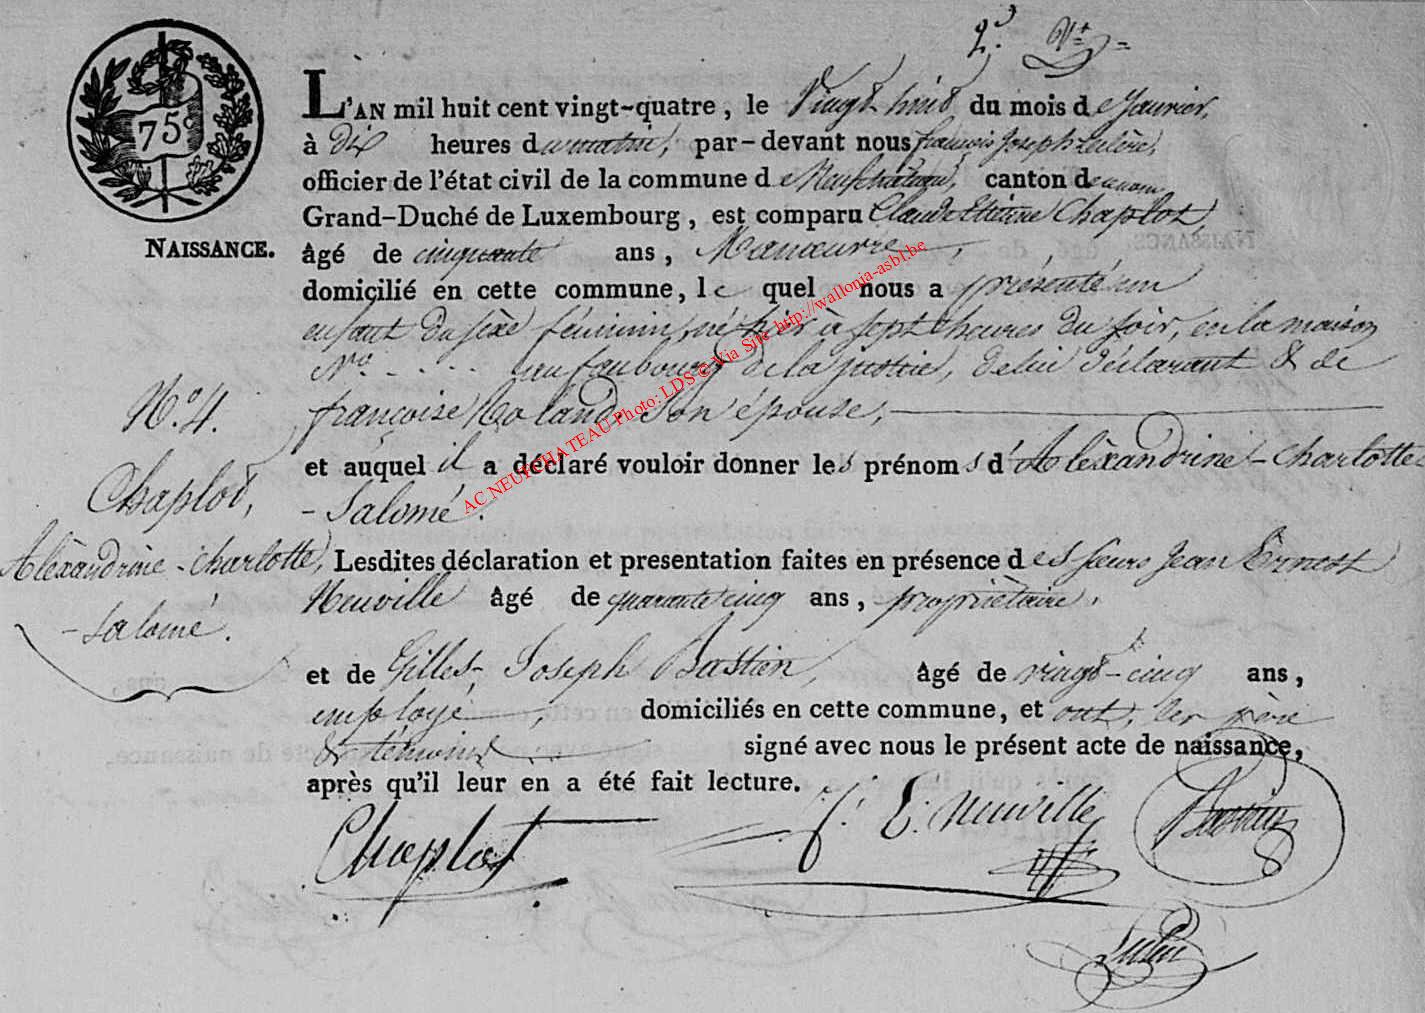 2.d Vt =
75c
L'AN mil huit cent vingt-quatre, le Vingt huit du mois de Janvier,
à dix heures du matin, par-devant nous françois Joseph
officier de l'état civil de la commune de Neufchâteau, canton de
Grand-Duché de Luxembourg, est comparu Claude Etienne Chaplot,
NAISSANCE. âgé de cinquante ans, Manœuvre,
domicilié en cette commune, le quel nous a présenté un
enfant du sèxe féminin, né hier à sept heures du soir, en la maison
No. ..... au faubourg de la justice, de lui déclarant & de
françoise Roland son épouse,
et auquel il a déclaré vouloir donner les prénoms d'Alèxandrine-Charlotte
-Salomé.
N.o 4.
Chaplot,
Alèxandrine-Charlotte,
-Salomé.
Lesdites déclaration et presentation faites en présence des sieurs Jean Ernest
Neuville âgé de quarante cinq ans, propriètaire,
et de Gilles-Joseph Bastien, âgé de vingt-cinq ans,
employé, domiciliés en cette commune, et ont, les père
& témoins signé avec nous le présent acte de naissance,
après qu'il leur en a été fait lecture.
Chaplot J. E. Neuville Bastien
AC NEUFCHATEAU Photo: LDS © Via Site http://wallonia-asbl.be